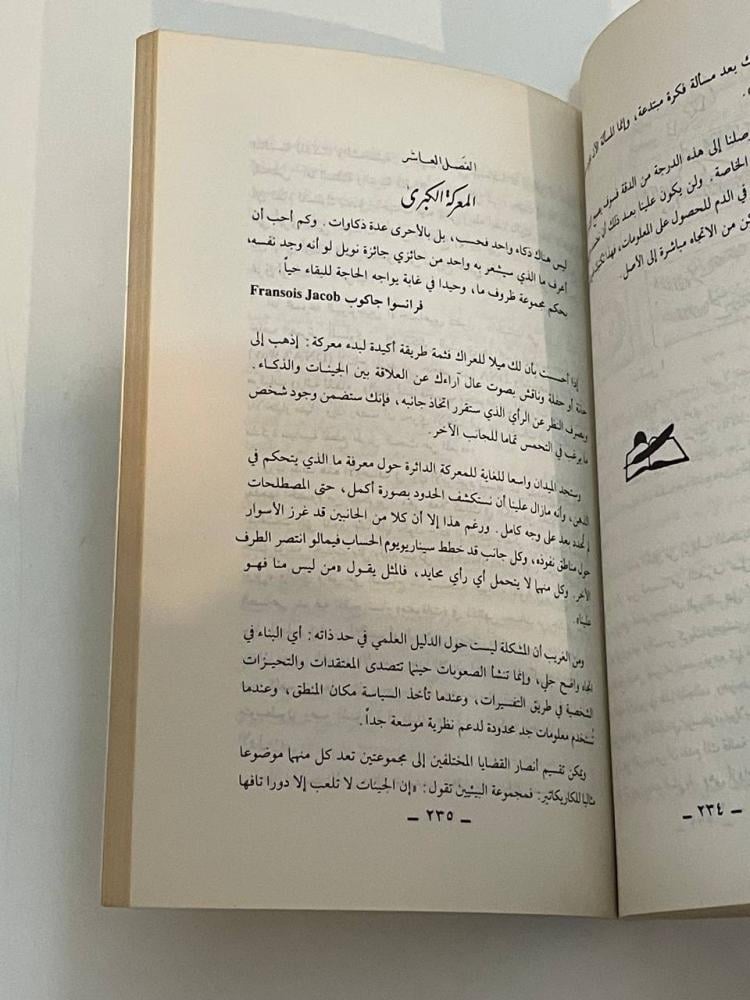 ك بعد مسألة فكرة مبتدعة، وإنما المسألة الآن
وصلنا إلى هذه الدرجة من الدقة فسوف
الخاصة. ولن يكون علينا بعد ذلك أن
في الدم للحصول على المعلومات، فهذا
من الاتجاه مباشرة إلى الأصل.
ــ ٢٣٤ ــ
الفصل العاشر
المعركة الكبرى
ليس هناك ذكاء واحد فحسب، بل بالأحرى عدة ذكاوات. وكم أحب أن
أعرف ما الذي سيشعر به واحد من حائزي جائزة نوبل لو أنه وجد نفسه،
بحكم مجموعة ظروف ما، وحيدا في غابة يواجه الحاجة للبقاء حياً.
فرانسوا جاكوب Fransois Jacob
إذا أحسست بأن لك ميلا للعراك فثمة طريقة أكيدة لبدء معركة: إذهب إلى
حانة أو حفلة وناقش بصوت عال آراءك عن العلاقة بين الجينات والذكاء.
وبصرف النظر عن الرأي الذي ستقرر اتخاذ جانبه، فإنك ستضمن وجود شخص
ما يرغب في التحمس تماما للجانب الآخر.
وستجد الميدان واسعا للغاية للمعركة الدائرة حول معرفة ما الذي يتحكم في
الذهن، وأنه مازال علينا أن نستكشف الحدود بصورة أكمل، حتى المصطلحات
لم تحدد بعد على وجه كامل. ورغم هذا إلا أن كلا من الجانبين قد غرز الأسوار
حول مناطق نفوذه، وكل جانب قد خطط سيناريويوم الحساب فيمالو انتصر الطرف
الآخر. وكل منهما لا يتحمل أي رأي محايد، فالمثل يقول «من ليس منا فهو
علينا».
ومن الغريب أن المشكلة ليست حول الدليل العلمي في حد ذاته: أي البناء في
اتجاه واضح جلي، وإنما تنشأ الصعوبات حينما تتصدى المعتقدات والتحيزات
الشخصية في طريق التفسيرات، وعندما تأخذ السياسة مكان المنطق، وعندما
تُستخدم معلومات جد محدودة لدعم نظرية موسعة جداً.
ويمكن تقسيم أنصار القضايا المختلفين إلى مجموعتين تعد كل منهما موضوعا
مثاليا للكاريكاتير: فمجموعة البيئيين تقول: «إن الجينات لا تلعب إلا دورا تافها
ــ ٢٣٥ ــ